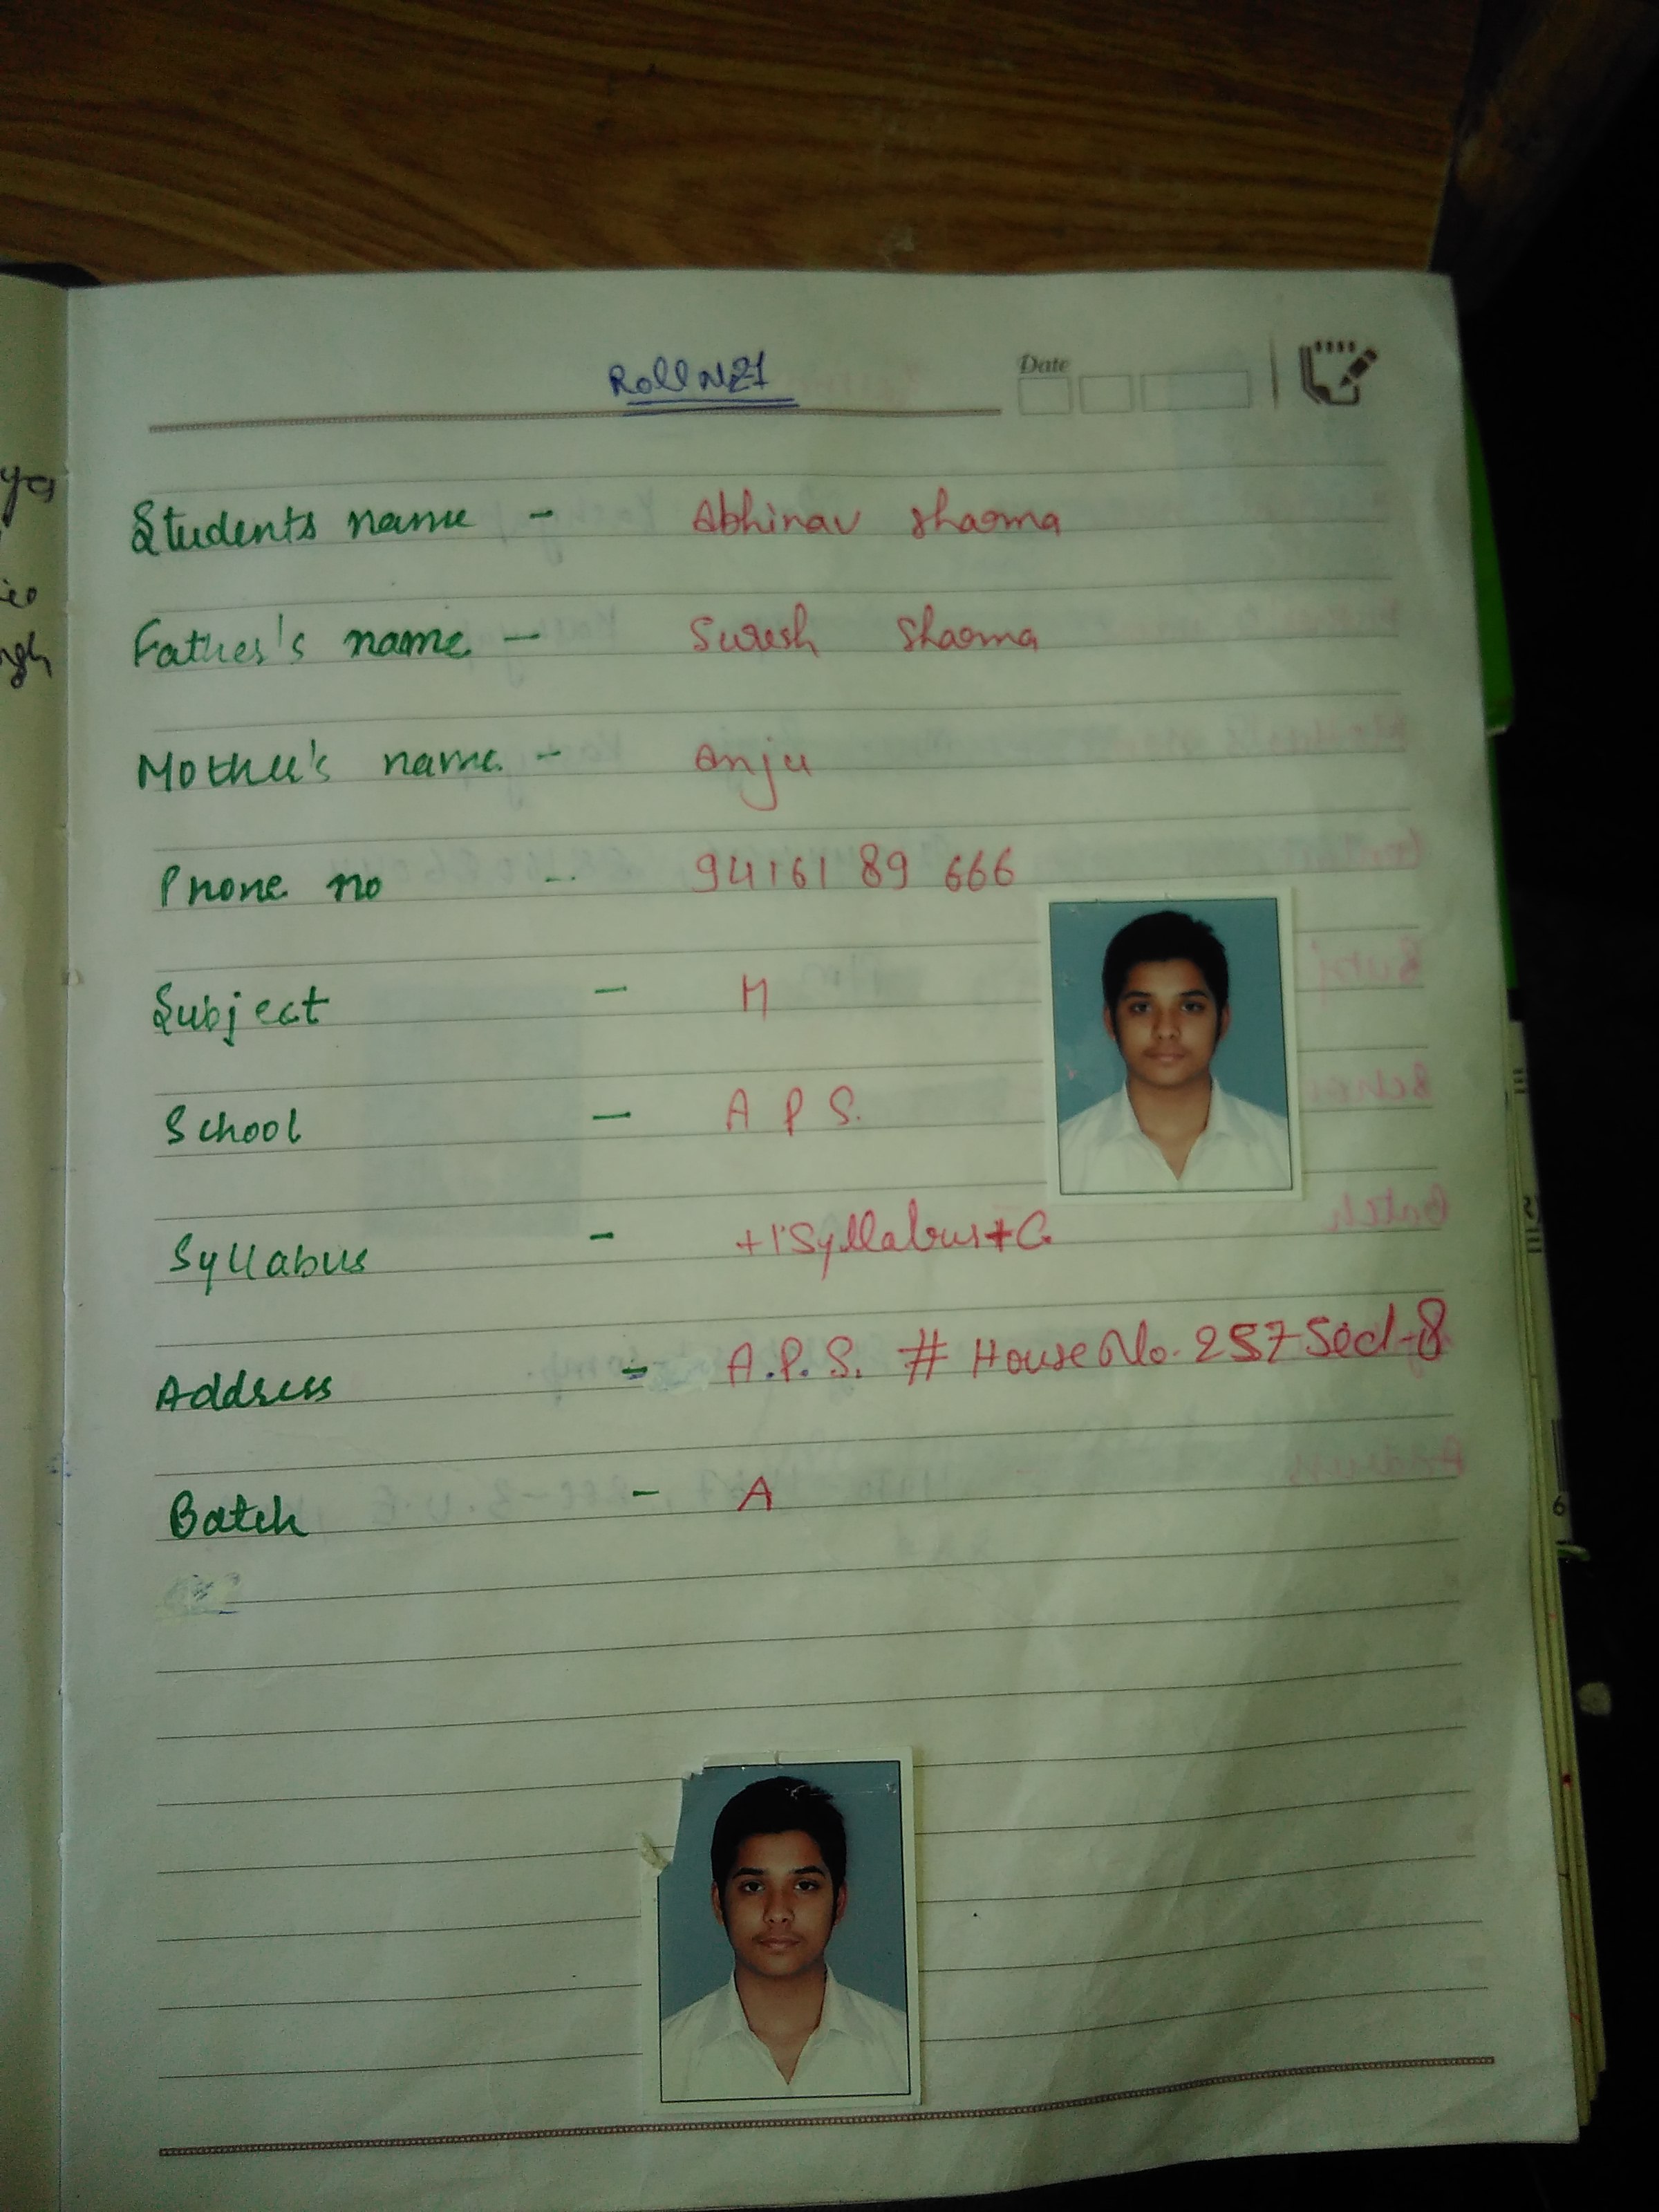 Roll N21
Date
Students name - Abhinav Sharma
Father's name - Suresh Sharma
Mother's name - Anju
Phone no - 94161 89 666
Subject - M
School - A P S.
Syllabus - +1 Syllabus + C.
Address - A.P.S. # House No. 257 Sect-8
Batch - A